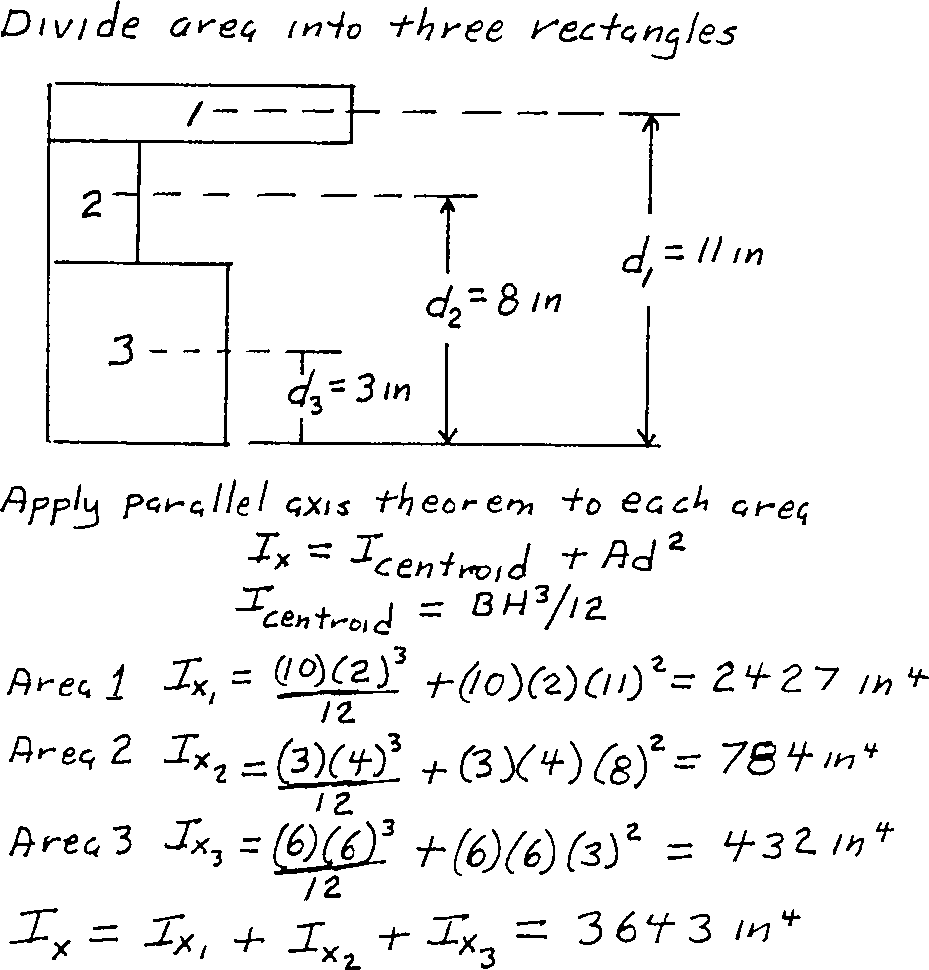 Divide area into three rectangles
1
2
d₁ = 11 in
d₂ = 8 in
3
d₃ = 3 in
Apply parallel axis theorem to each area
Iₓ = I centroid + Ad²
I centroid = BH³/12
Area 1 Iₓ₁ = (10)(2)³/12 + (10)(2)(11)² = 2427 in⁴
Area 2 Iₓ₂ = (3)(4)³/12 + (3)(4)(8)² = 784 in⁴
Area 3 Iₓ₃ = (6)(6)³/12 + (6)(6)(3)² = 432 in⁴
Iₓ = Iₓ₁ + Iₓ₂ + Iₓ₃ = 3643 in⁴